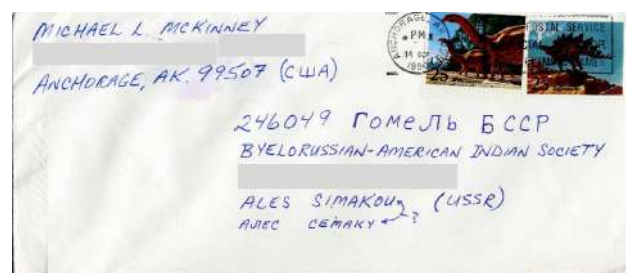 MICHAEL L. MCKINNEY
ANCHORAGE, AK. 99507 (США)
ANCHORAGE, A
PM
14
1990
25
POSTAL SERVICE
246049 ГОМЕЛЬ БССР
BYELORUSSIAN-AMERICAN INDIAN SOCIETY
ALES SIMAKOU (USSR)
АЛЕС СЕМАКУ ?